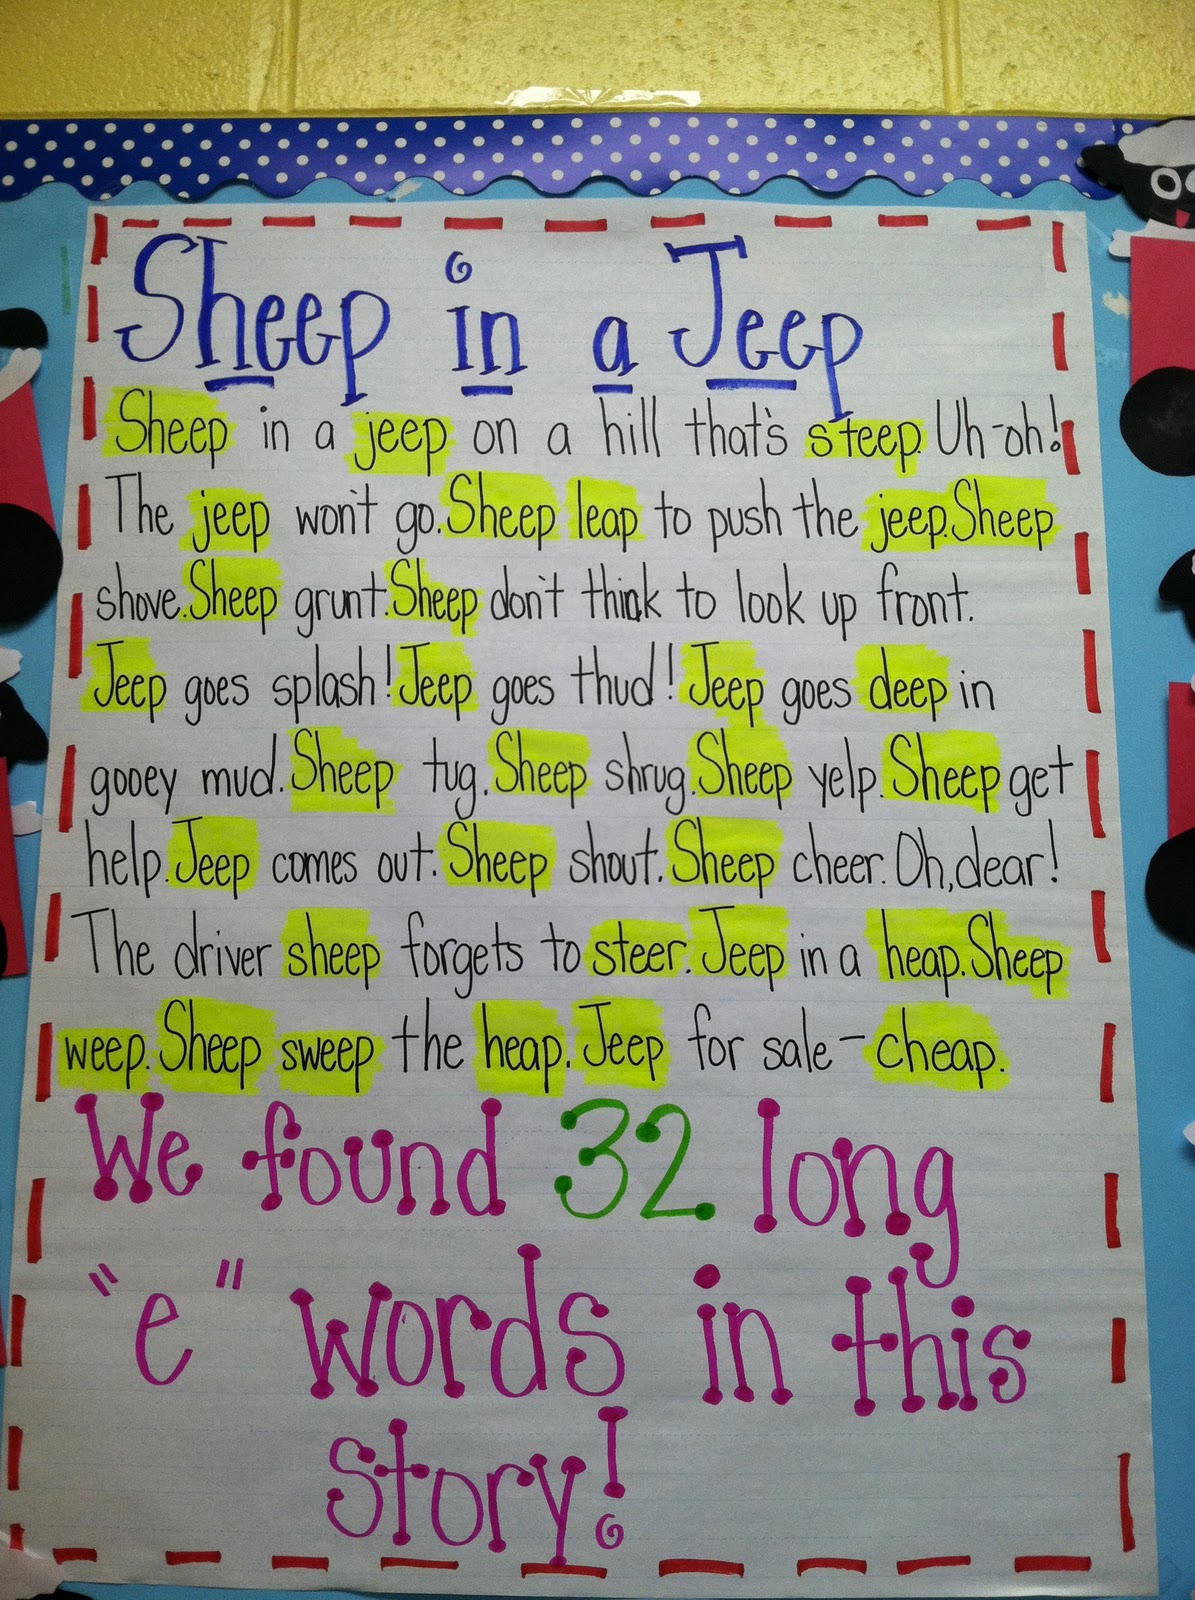 Sheep in a Jeep
Sheep in a jeep on a hill that's steep. Uh-oh!
The jeep won't go. Sheep leap to push the jeep. Sheep
shove. Sheep grunt. Sheep don't think to look up front.
Jeep goes splash! Jeep goes thud! Jeep goes deep in
gooey mud. Sheep tug. Sheep shrug. Sheep yelp. Sheep get
help. Jeep comes out. Sheep shout. Sheep cheer. Oh, dear!
The driver sheep forgets to steer. Jeep in a heap. Sheep
weep. Sheep sweep the heap. Jeep for sale - cheap.
We found 32 long
"e" words in this
story!